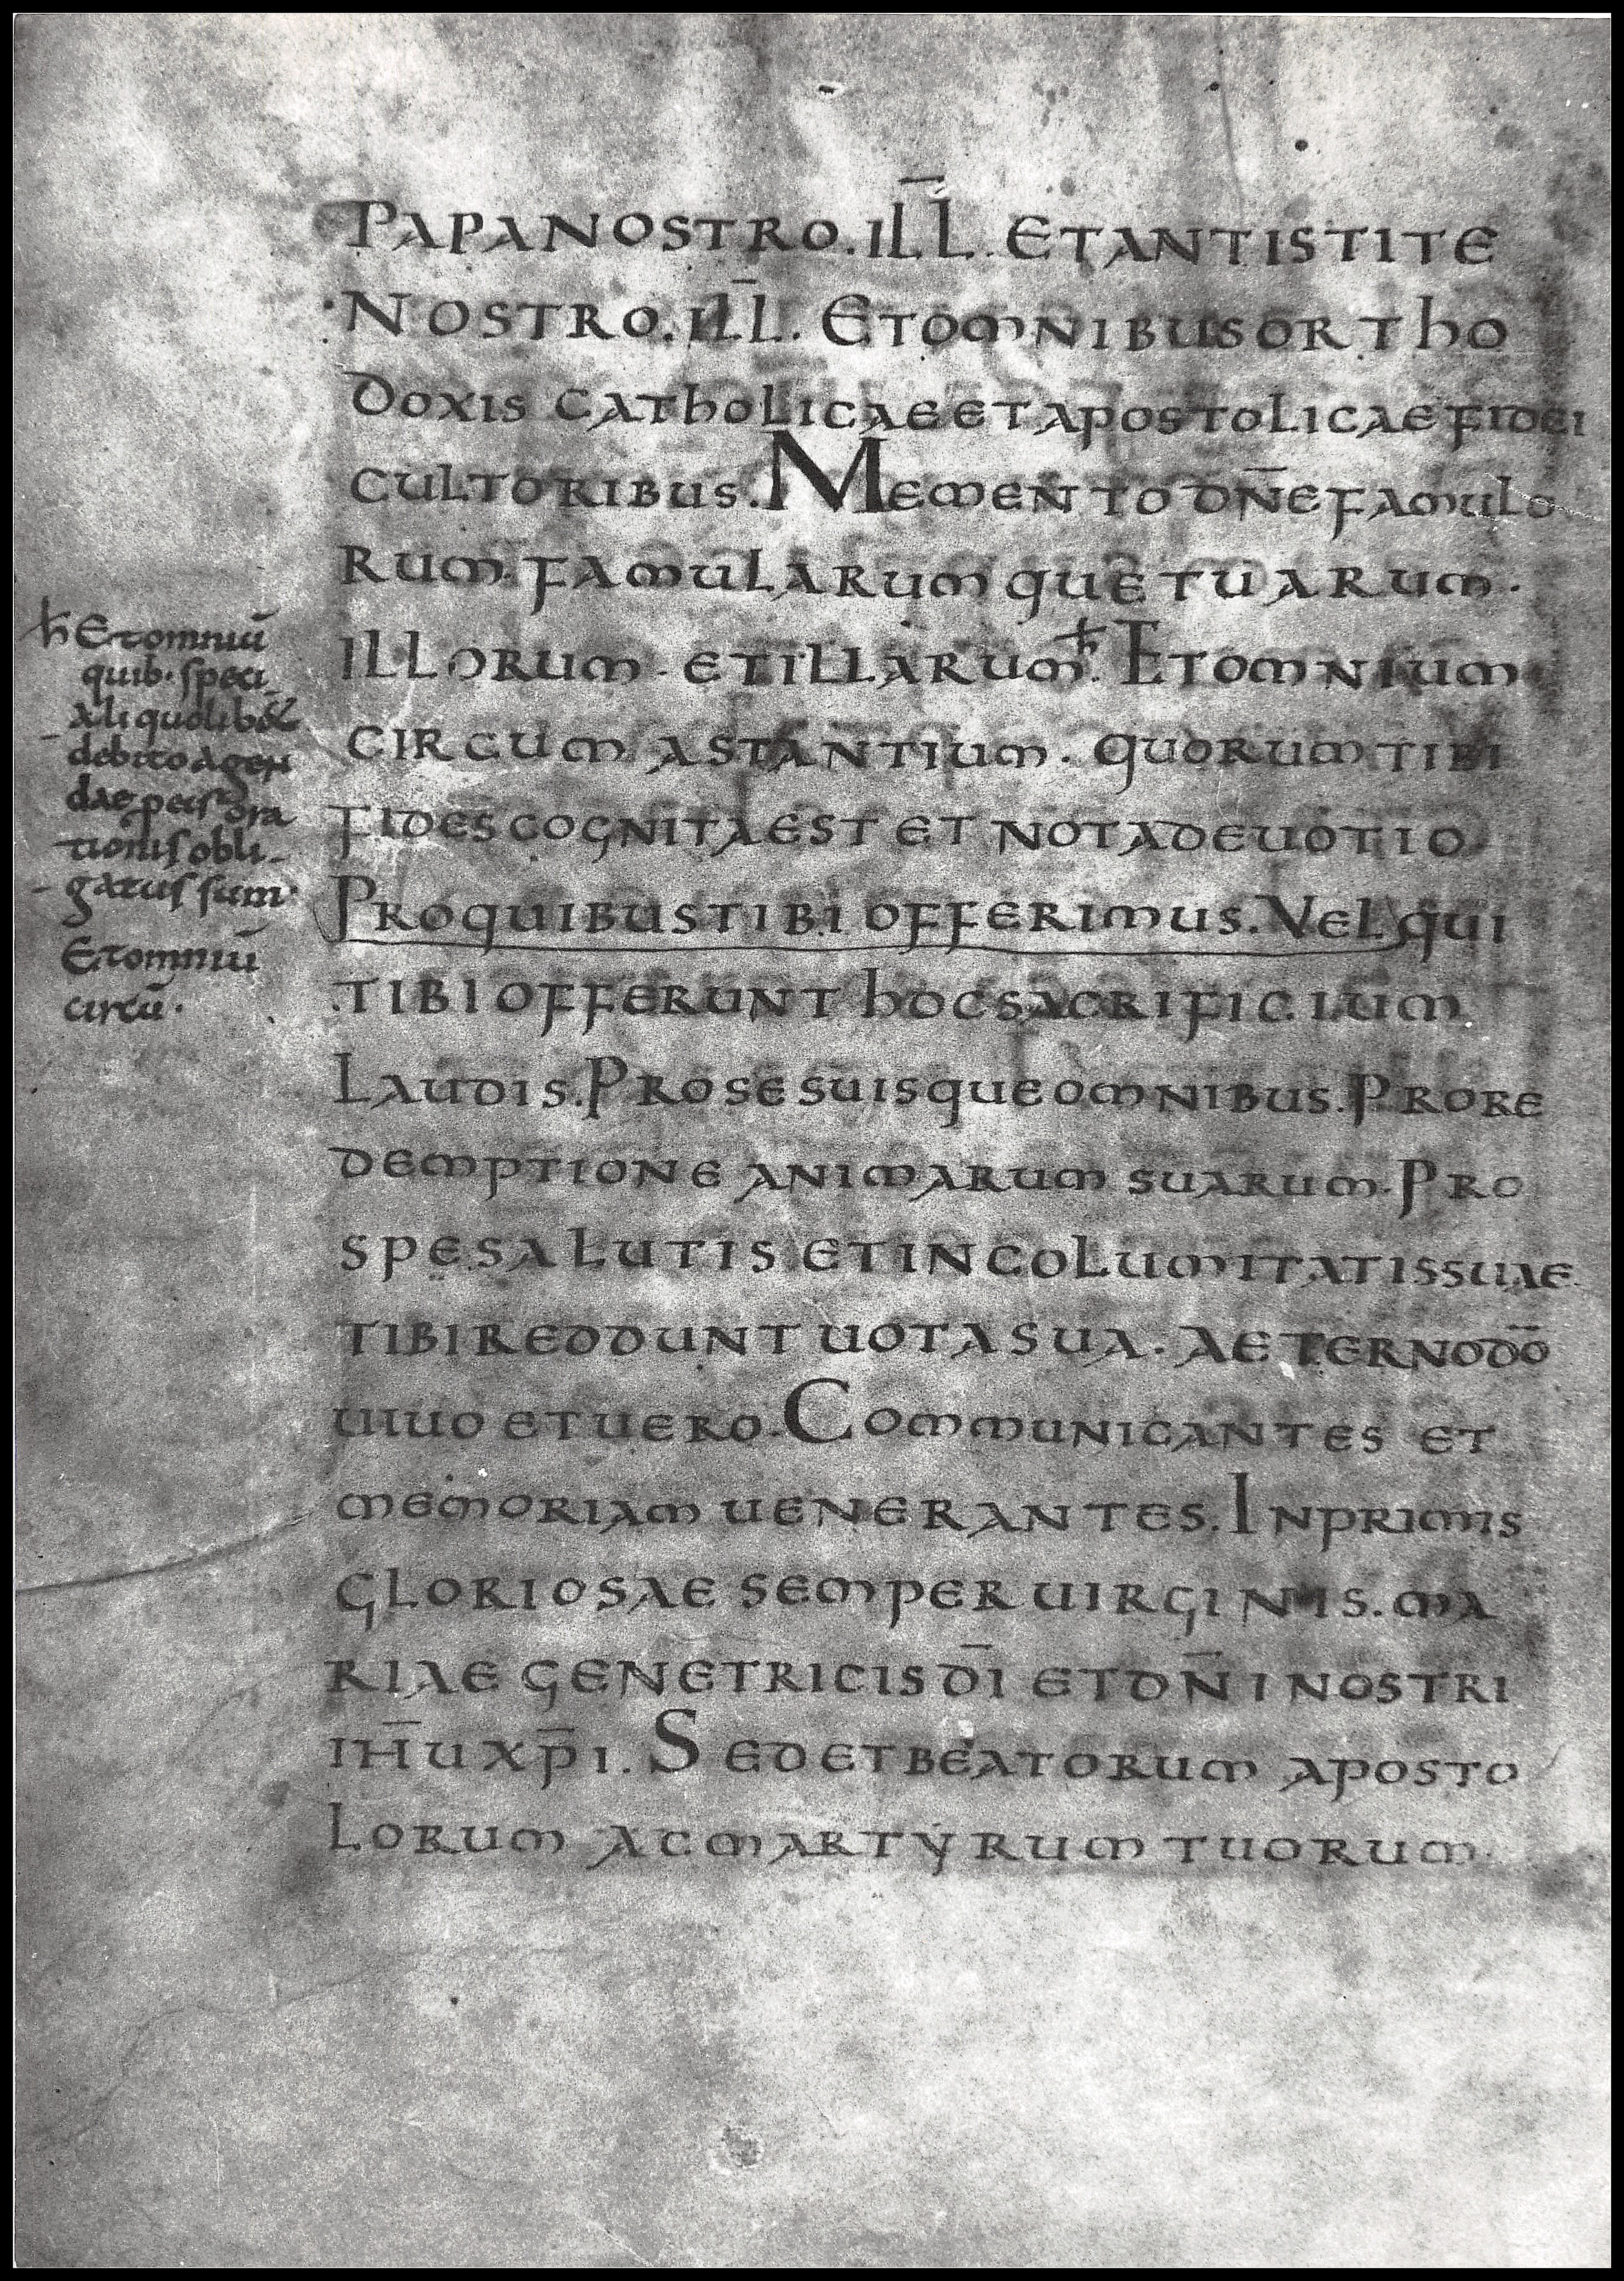 PAPANOSTRO. ILL̄. ETANTISTITE
NOSTRO. ILL̄. ETOMNIBUSORTHO
DOXIS CATHOLICAEETAPOSTOLICAEFIDEI
CULTORIBUS. MEMENTO DN̄EFAMULO
RUM. FAMULARUMQUETUARUM.
ILLORUM. ETILLARUM. ħ ETOMNIUM
CIRCUM ASTANTIUM. QUORUMTIBI
FIDES COGNITAEST ET NOTADEUOTIO
PROQUIBUSTIBI OFFERIMUS. VEL QUI
TIBIOFFERUNT HOCSACRIFICIUM
LAUDIS. PROSESUISQUEOMNIBUS. PRORE
DEMPTIONE ANIMARUM SUARUM. PRO
SPESALUTIS ETINCOLUMITATISSUAE.
TIBIREDDUNT UOTASUA. AETERNODŌ
UIUO ETUERO. COMMUNICANTES ET
MEMORIAM UENERANTES. INPRIMIS
GLORIOSAE SEMPERUIRGINIS. MA
RIAE GENETRICISDĪ ETDN̄INOSTRI
IH̄UXP̄I. SEDETBEATORUM APOSTO
LORUM ACMARTYRUM TUORUM.
ħ Etomniū
quib. speci
aliquolib&
debitoagen
dae
ora
tionisobli
gatussum.
Etomniū
circū.